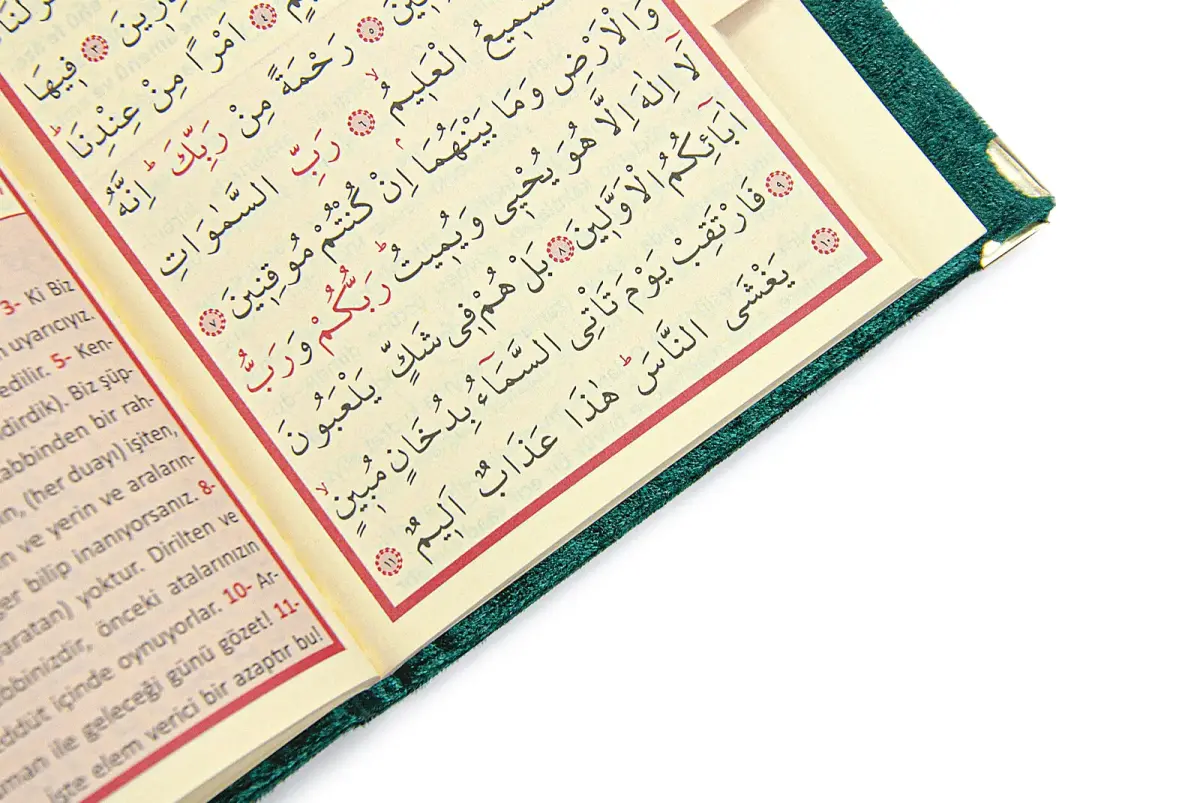 فِيهَا
اَمْرًا مِنْ عِنْدِنَا
رَحْمَةً مِنْ رَبِّكَ اِنَّهُ
السَّمِيعُ الْعَلِيمُ ٦ رَبِّ السَّمٰوَاتِ
وَالْاَرْضِ وَمَا بَيْنَهُمَا اِنْ كُنْتُمْ مُوقِنِينَ ٧
لَٓا اِلٰهَ اِلَّا هُوَ يُحْيِى وَيُمِيتُ رَبُّكُمْ وَرَبُّ
اٰبَٓائِكُمُ الْاَوَّلِينَ ٨ بَلْ هُمْ فِى شَكٍّ يَلْعَبُونَ
٩ فَارْتَقِبْ يَوْمَ تَاْتِى السَّمَٓاءُ بِدُخَانٍ مُبِينٍ
١٠ يَغْشَى النَّاسَ هٰذَا عَذَابٌ اَلِيمٌ ١١
3- Ki Biz
uyarıcıyız.
edilir. 5- Ken-
Biz şüp-
bir rah-
(her duayı) işiten,
ve yerin ve araların-
bilip inanıyorsanız. 8-
yoktur. Dirilten ve
önceki atalarınızın
içinde oynuyorlar. 10- Ar-
ile geleceği günü gözet! 11-
İşte elem verici bir azaptır bu!